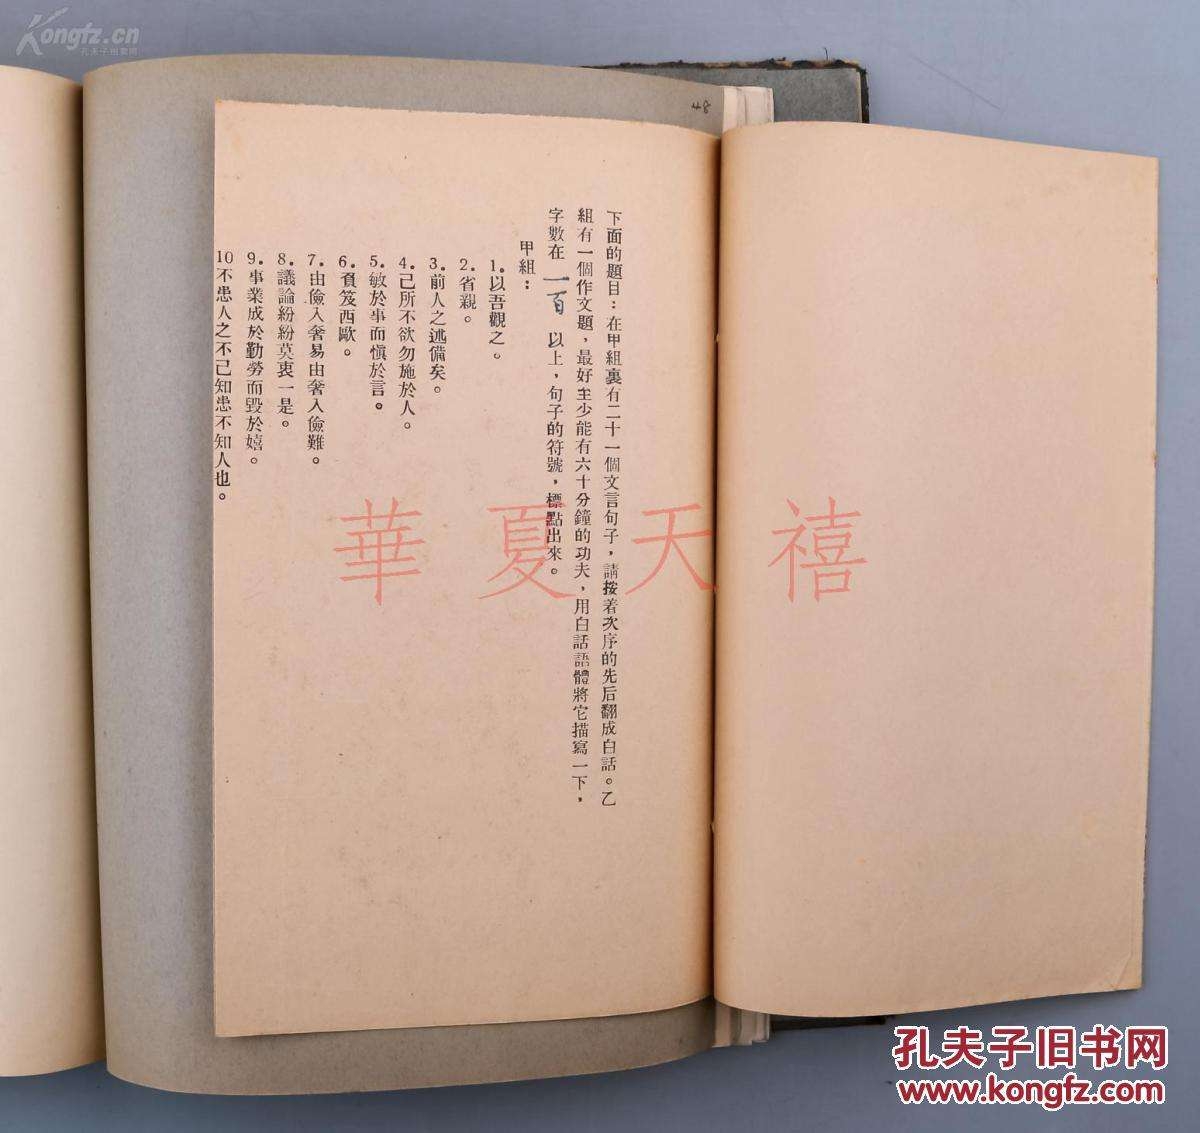 Kongfz.cn
孔夫子旧书网
48
下面的題目：在甲組裏有二十一個文言句子，請按着次序的先后翻成白話。乙
組有一個作文題，最好至少能有六十分鐘的功夫，用白話語體將它描寫一下，
字數在一百以上，句子的符號，標點出來。
甲組：
1.以吾觀之。
2.省親。
3.前人之述備矣。
4.己所不欲勿施於人。
5.敏於事而愼於言。
6.負笈西歐。
7.由儉入奢易由奢入儉難。
8.議論紛紛莫衷一是。
9.事業成於勤勞而毀於嬉。
10不患人之不己知患不知人也。
華夏天禧
孔夫子旧书网
www.kongfz.com